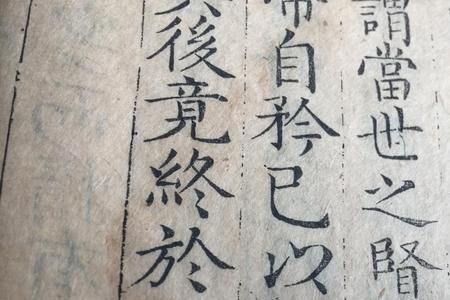 謂當世之賢
帝自矜已以
後竟終於